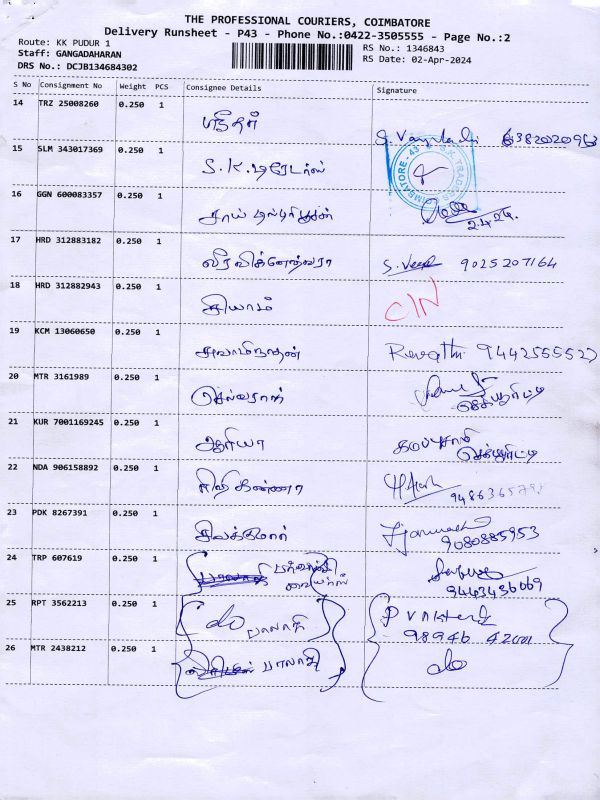 THE PROFESSIONAL COURIERS, COIMBATORE
Delivery Runsheet - P43 - Phone No.:0422-3505555 - Page No.:2
Route: KK PUDUR 1
Staff: GANGADAHARAN
DRS No.: DCJB134684302
RS No.: 1346843
RS Date: 02-Apr-2024
S No Consignment No Weight PCS Consignee Details Signature
14 TRZ 25008260 0.250 1 ஸ்ரீதர்
15 SLM 343017369 0.250 1 S.K.டிரேடர்ஸ்
COIMBATORE - 43
16 GGN 600083357 0.250 1 சாய் 2.4.24
17 HRD 312883182 0.250 1 வீரவிக்னேஷ்வரா S. Veer 9025207164
18 HRD 312882943 0.250 1 சியாம் C/N
19 KCM 13060650 0.250 1 சுவாமிநாதன் Revathi 9442555527
20 MTR 3161989 0.250 1 செல்வராஜ் செக்யூரிட்டி
21 KUR 7001169245 0.250 1 ஆரியா கருப்புசாமி செக்யூரிட்டி
22 NDA 906158892 0.250 1 ரிஷிகண்ணா
23 PDK 8267391 0.250 1 சிவக்குமார் 9080885953
24 TRP 607619 0.250 1 9443436069
25 RPT 3562213 0.250 1 do பாலாஜி
26 MTR 2438212 0.250 1 பாலாஜி do